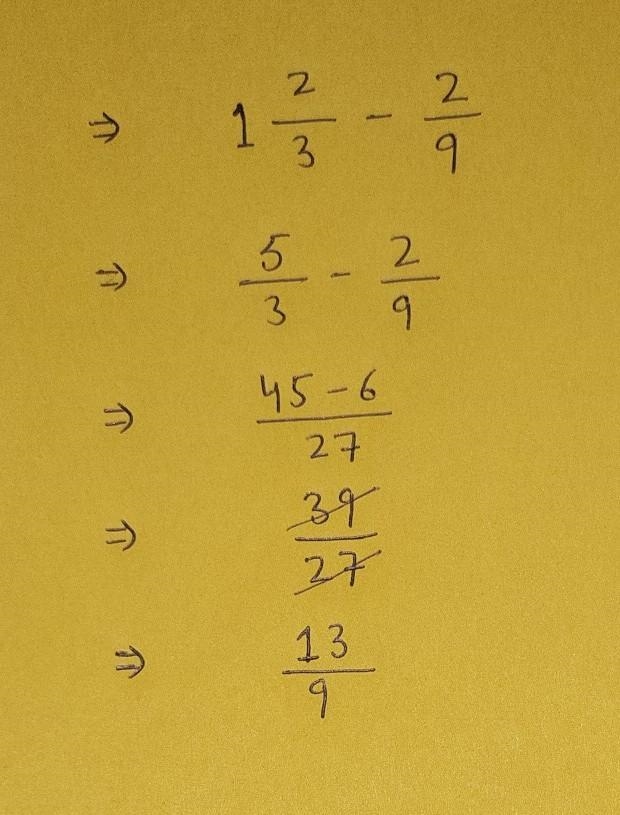 ⇒ 1 2/3 - 2/9
⇒ 5/3 - 2/9
⇒ 45 - 6/27
⇒ 39/27
⇒ 13/9